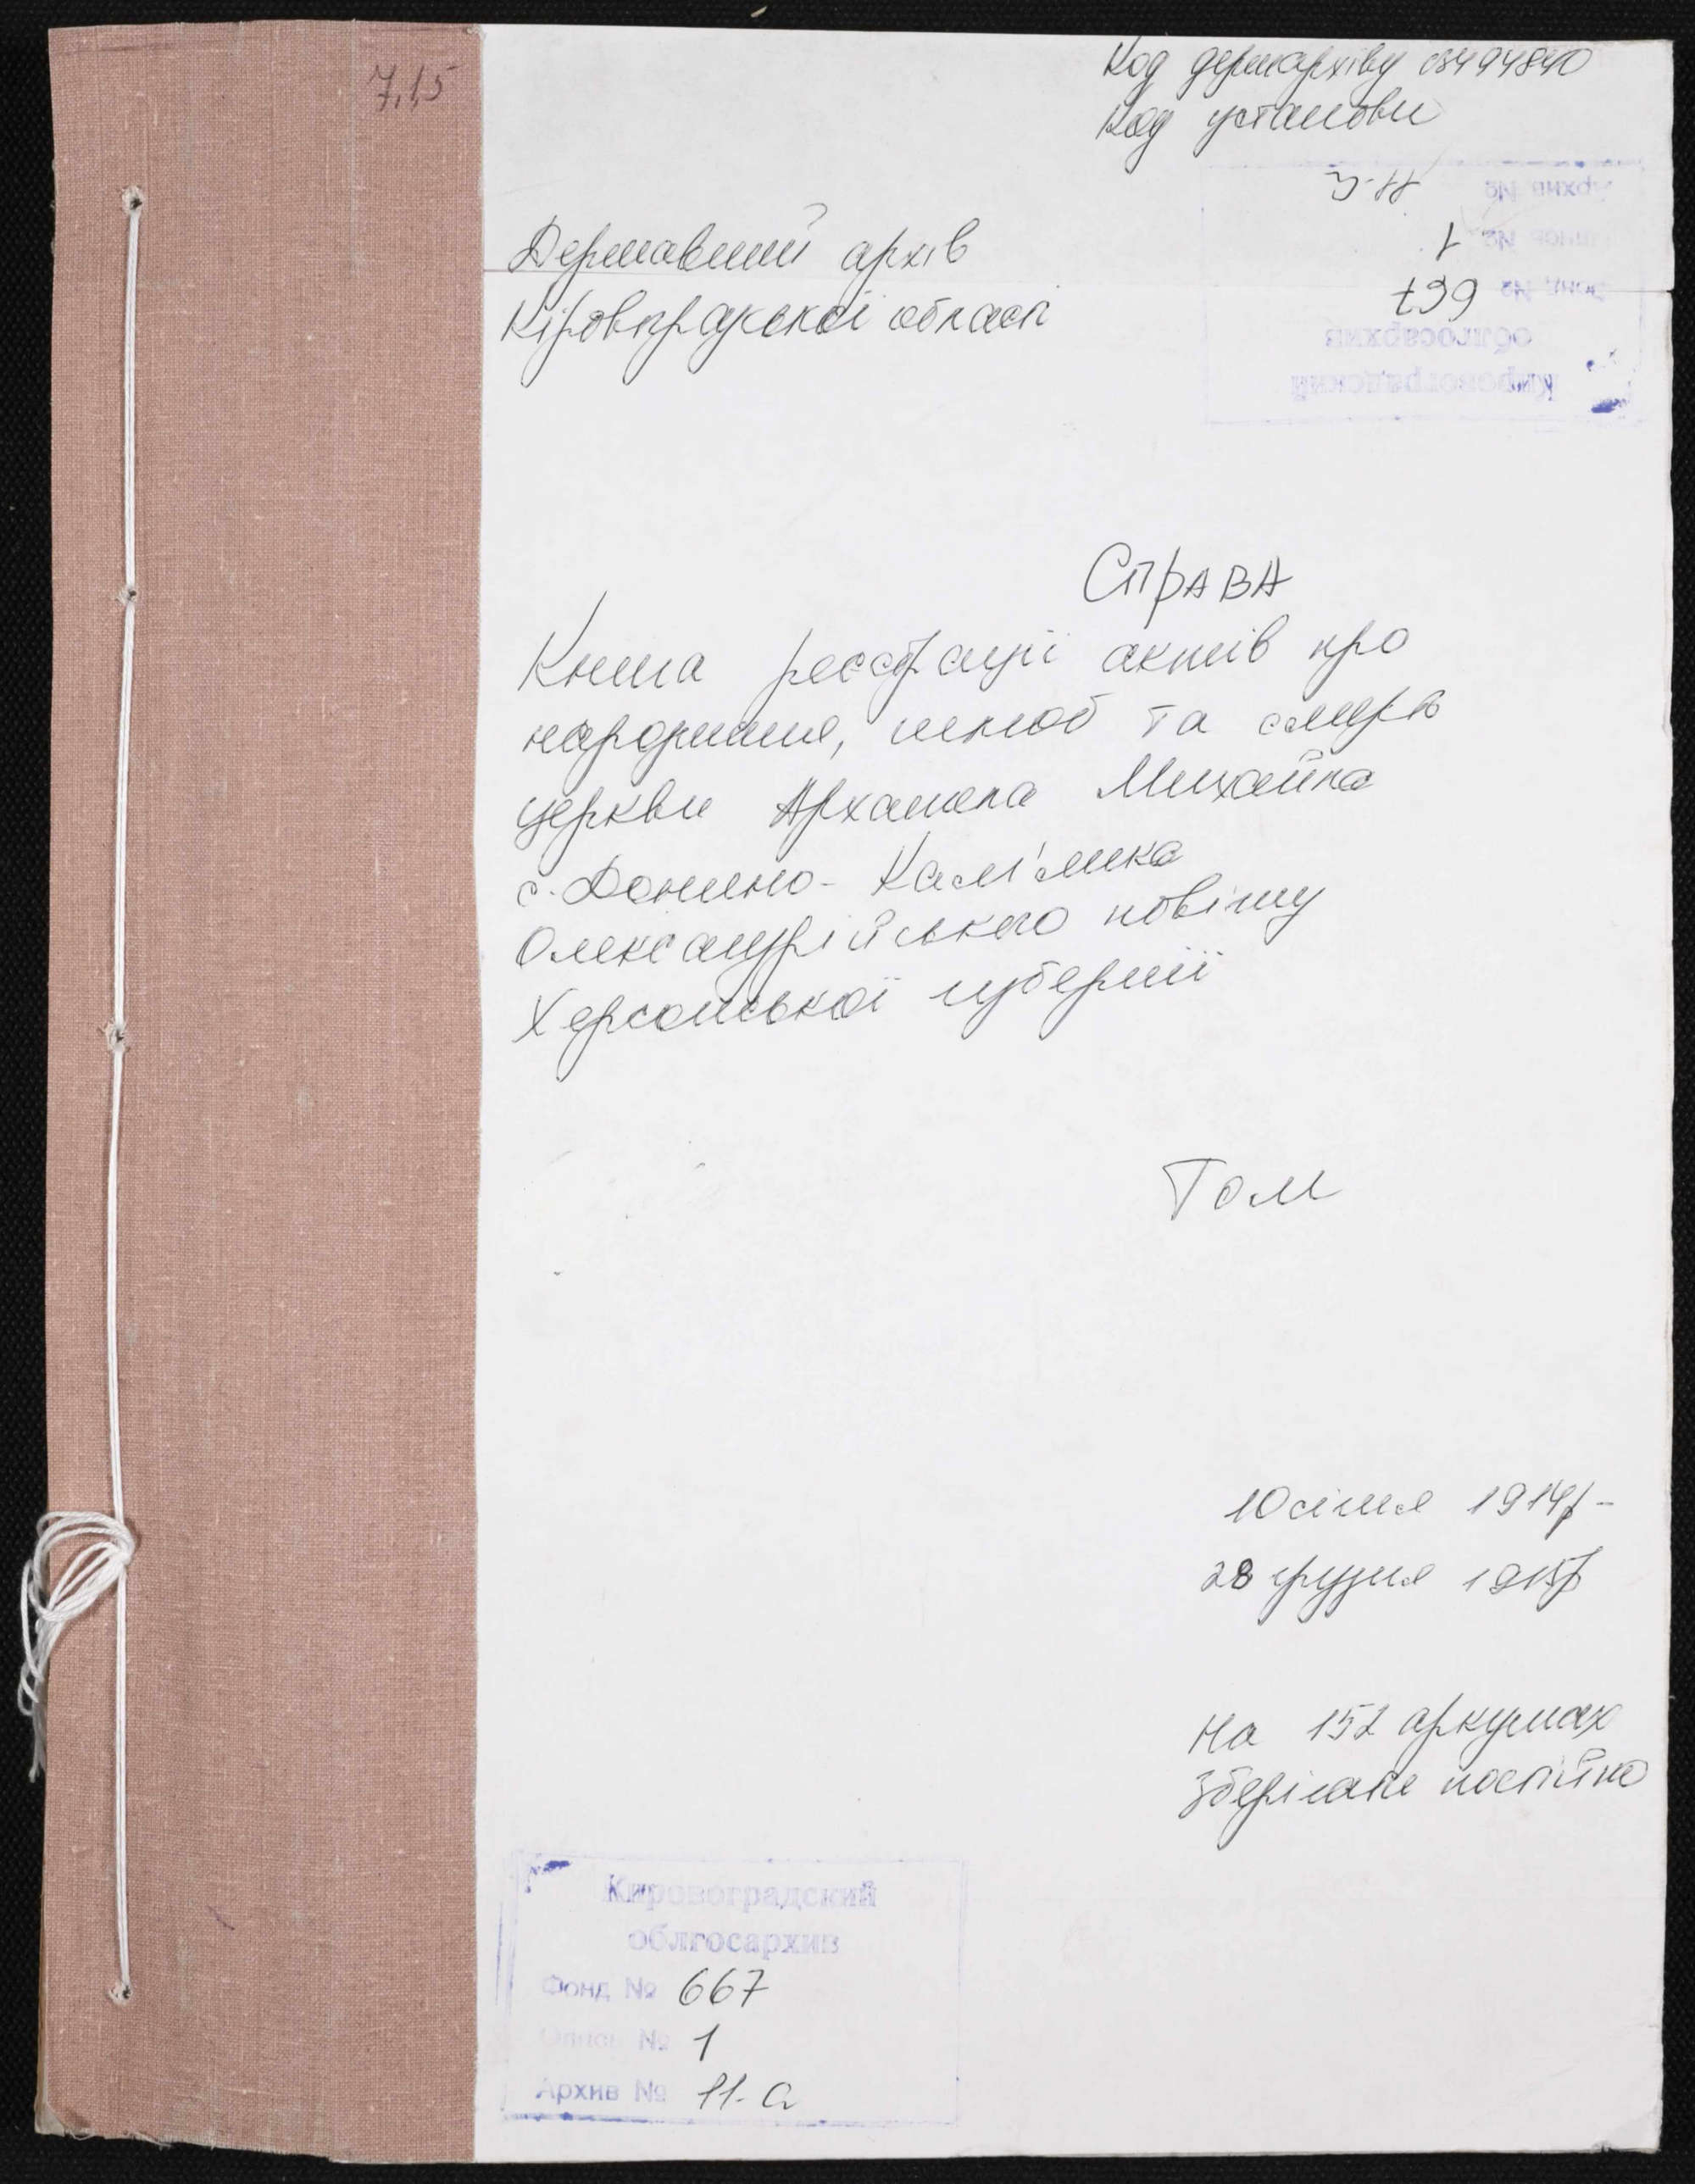 7,15
Код держархіву 03494840
Код установи
Архив № 11-а
Опись № 1
Фонд № 667
облгосархив
Кировоградский
Державний архів
Кіровоградської області
Справа
Книга реєстрації актів про
народження, шлюб та смерть
церкви Архангела Михаїла
с. Донино-Кам'янка
Олександрійського повіту
Херсонської губернії
Том
10 січня 1914р-
28 грудня 1915р
На 152 аркушах
Зберігати постійно
Кировоградский
облгосархив
Фонд № 667
Опись № 1
Архив № 11-а